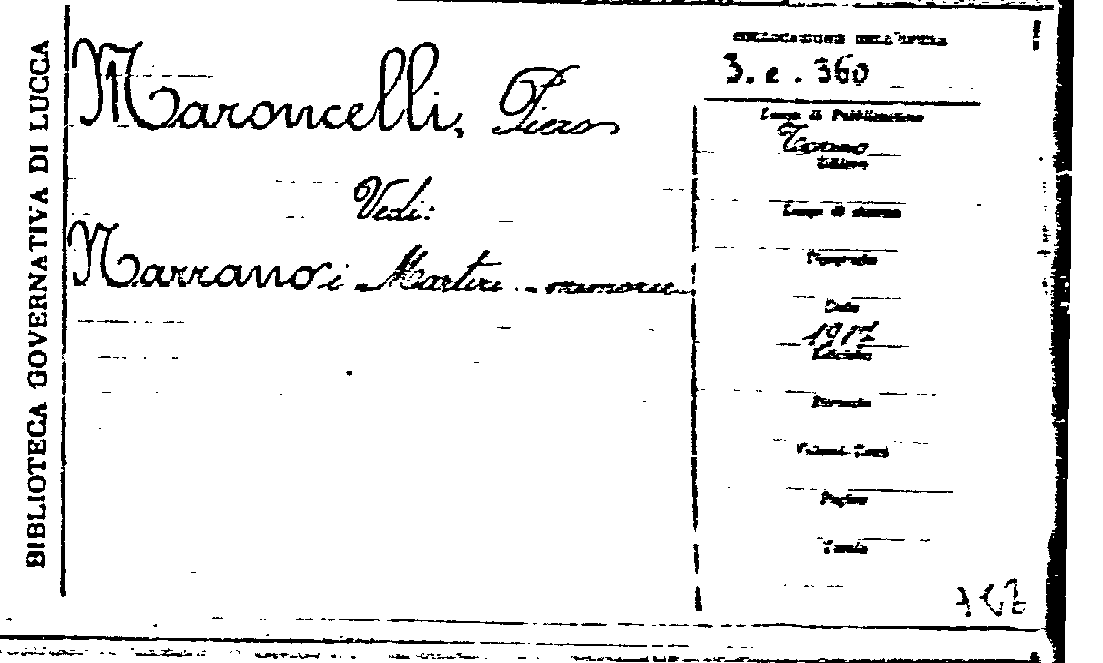 BIBLIOTECA GOVERNATIVA DI LUCCA
Maroncelli, Piero
Vedi:
Narrano i Martiri - memorie
COLLOCAZIONE DELL'OPERA
3. e. 360
Luogo di Pubblicazione
Torino
Editore
Luogo di stampa
Tipografia
Data
1917
Edizione
Formato
Volumi-Tomi
Pagine
Tavole